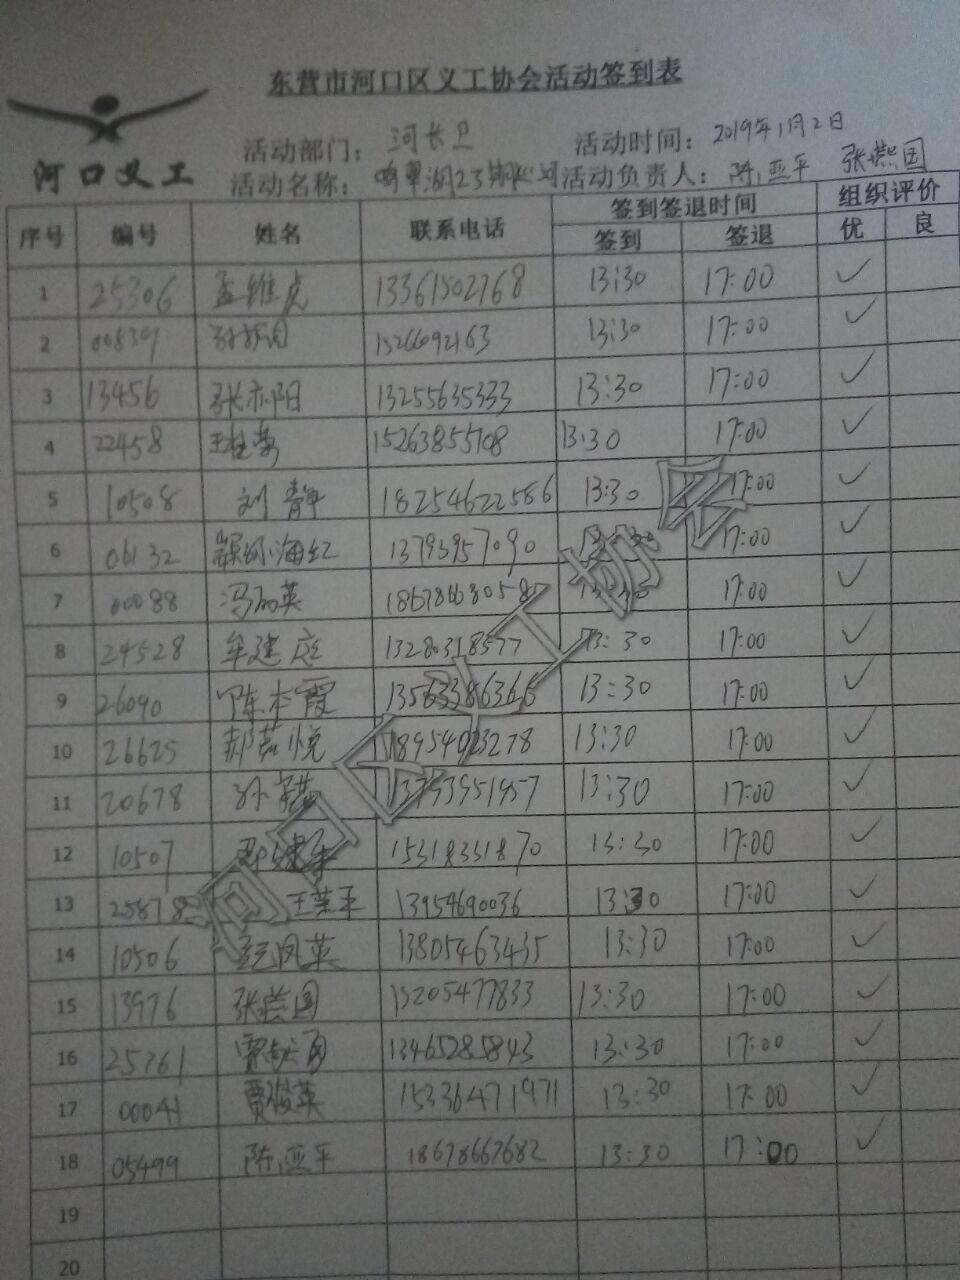 东营市河口区义工协会活动签到表
河口义工
活动部门： 河长卫 活动时间： 2019年1月2日
活动名称： 湖23 河 活动负责人： 陈亚平 张燕国
序号 编号 姓名 联系电话 签到签退时间 组织评价
签到 签退 优 良
1 25306 孟维虎 13361502768 13:30 17:00 ✓
2 00839 13:30 17:00 ✓
3 13456 张亦阳 13255635333 13:30 17:00 ✓
4 22458 王桂 15263855708 13:30 17:00 ✓
5 10508 刘静 18254622586 13:30 17:00 ✓
6 06132 海红 13793957090 17:00 ✓
7 00088 冯丽英 18678668058 13:30 17:00 ✓
8 24528 牟建庭 13280318577 13:30 17:00 ✓
9 26090 陈本霞 13563386366 13:30 17:00 ✓
10 26625 郝茗悦 18954023278 13:30 17:00 ✓
11 20678 孙 13793951957 13:30 17:00 ✓
12 10507 15318331870 13:30 17:00 ✓
13 25878 王荣平 13954690036 13:30 17:00 ✓
14 10506 凤英 13805463435 13:30 17:00 ✓
15 13976 张燕国 13205477833 13:30 17:00 ✓
16 25761 贾 13465285843 13:30 17:00 ✓
17 00041 贾俊英 15336471971 13:30 17:00 ✓
18 05499 陈亚平 18678667682 13:30 17:00 ✓
19
20
河口区义工协会